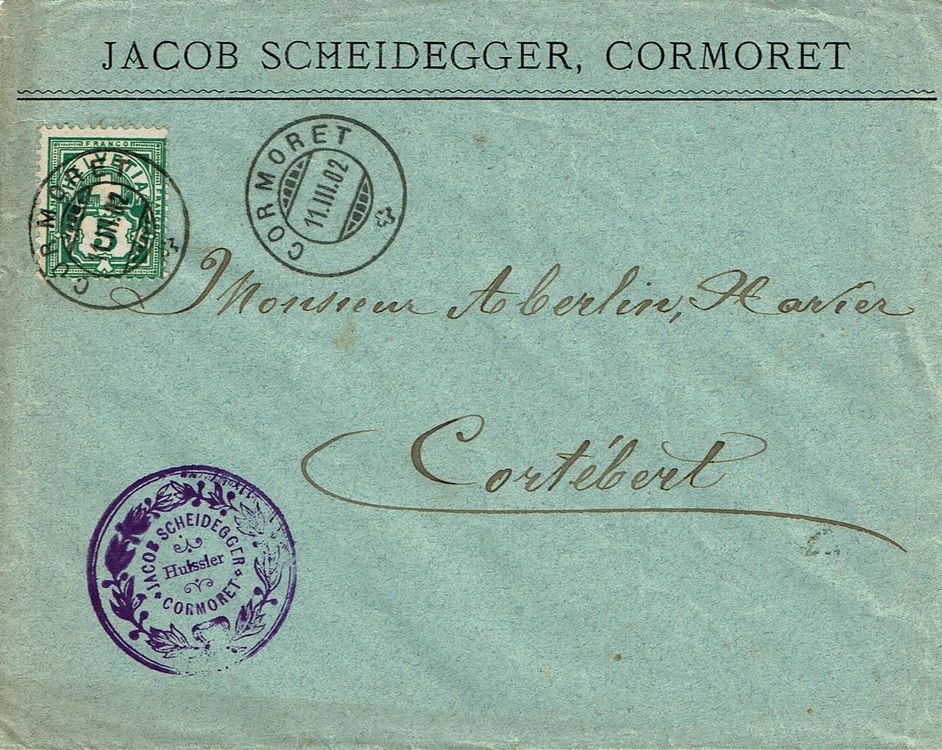 JACOB SCHEIDEGGER, CORMORET
FRANCO
HELVETIA
5
CORMORET
11.III.02
CORMORET
11.III.02
Monsieur Aberlin,
Cortébert
JACOB SCHEIDEGGER
Huissier
CORMORET